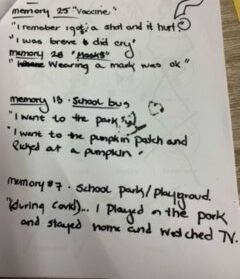 memory 25 "Vaccine"
"I remeber I got a shot and it hurts
"I was breve & did cry"
memory 26 "Masks"
" Wearing a mask was ok"
memory 18 - School bus
"I want to the park
"I want to the pumpkin patch and
Picked at a pumpkin"
memory #7 - School park/playgroud.
"(during covid)... I played on the park
and stayed home and watched TV.